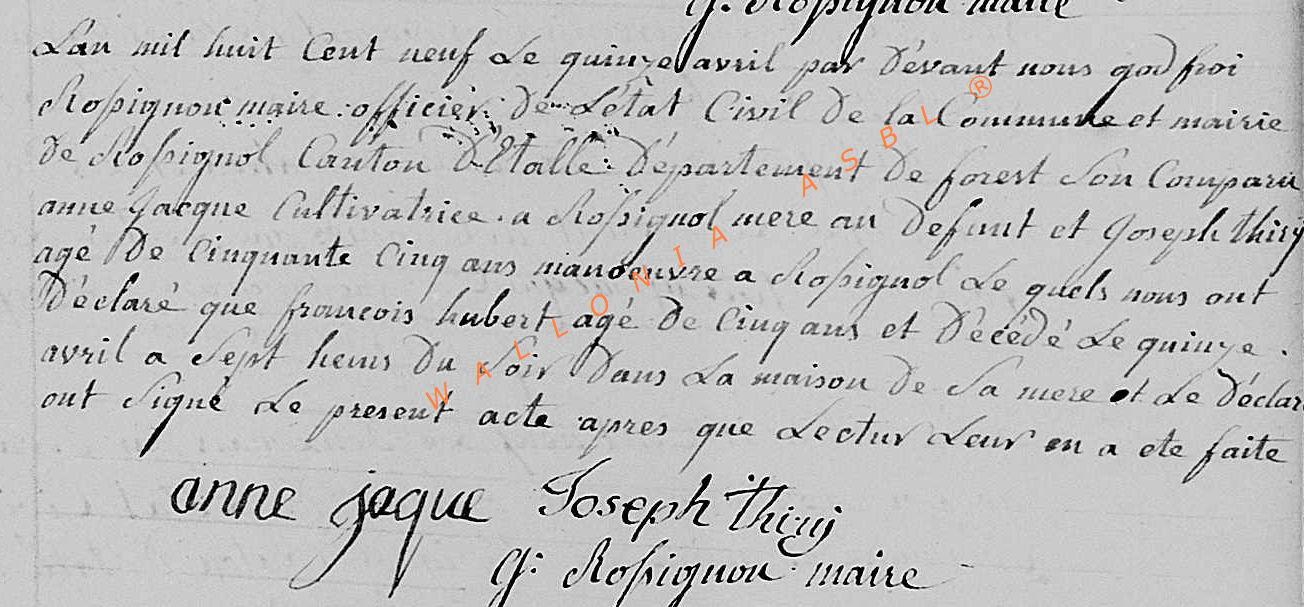 G. Rossignon maire
L'an mil huit Cent neuf Le quinze avril par Dévant nous godfroi
Rossignon maire officier De L'état Civil De la Commune et mairie
De Rossignol Canton D'Etalle Département De forest Son Comparu
anne Jacque Cultivatrice a Rossignol mere au Defunt et Joseph thiry
agé De Cinquante Cinq ans manoeuvre a Rossignol Le quels nous ont
Déclaré que francois hubert agé De Cinq ans et Décédé Le quinze
avril a Sept heurs Du Soir Dans La maison De Sa mere et Le Déclar
ont Signé Le present acte apres que Lectur Leur en a ete faite
anne jaque Joseph thiry
G: Rossignon maire
WALLONIA ASBL ®